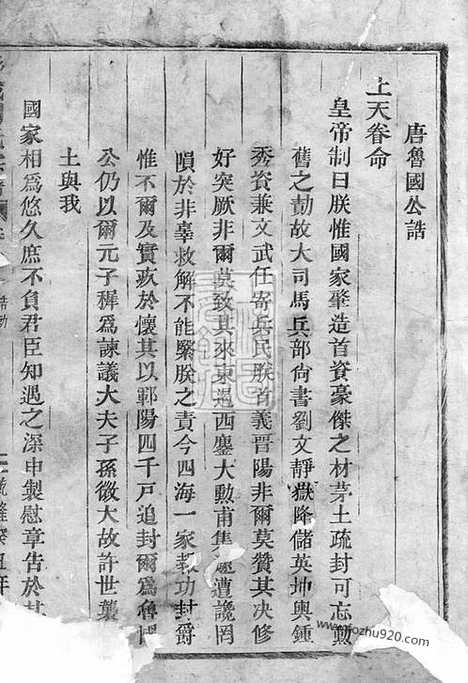 唐魯國公誥
上天眷命
皇帝制曰朕惟國家肇造首資豪傑之材茅土疏封可忘勲
舊之勣故大司馬兵部尙書劉文靜嶽降儲英坤輿鍾
秀資兼文武任寄兵民朕首義晋陽非爾莫贊其决修
好突厥非爾莫致其來東遏西鏖大勲甫集遽遭讒罔
隕於非辜救解不能緊朕之責今四海一家報功封爵
惟不爾及實疚於懷其以鄆陽四千戸追封爾爲魯國
公仍以爾元子穉爲諫議大夫子孫微大故許世襲
土與我
國家相爲悠久庶不負君臣知遇之深申製慰章告於
誥勅
隆癸丑年
www.fozhu920.com